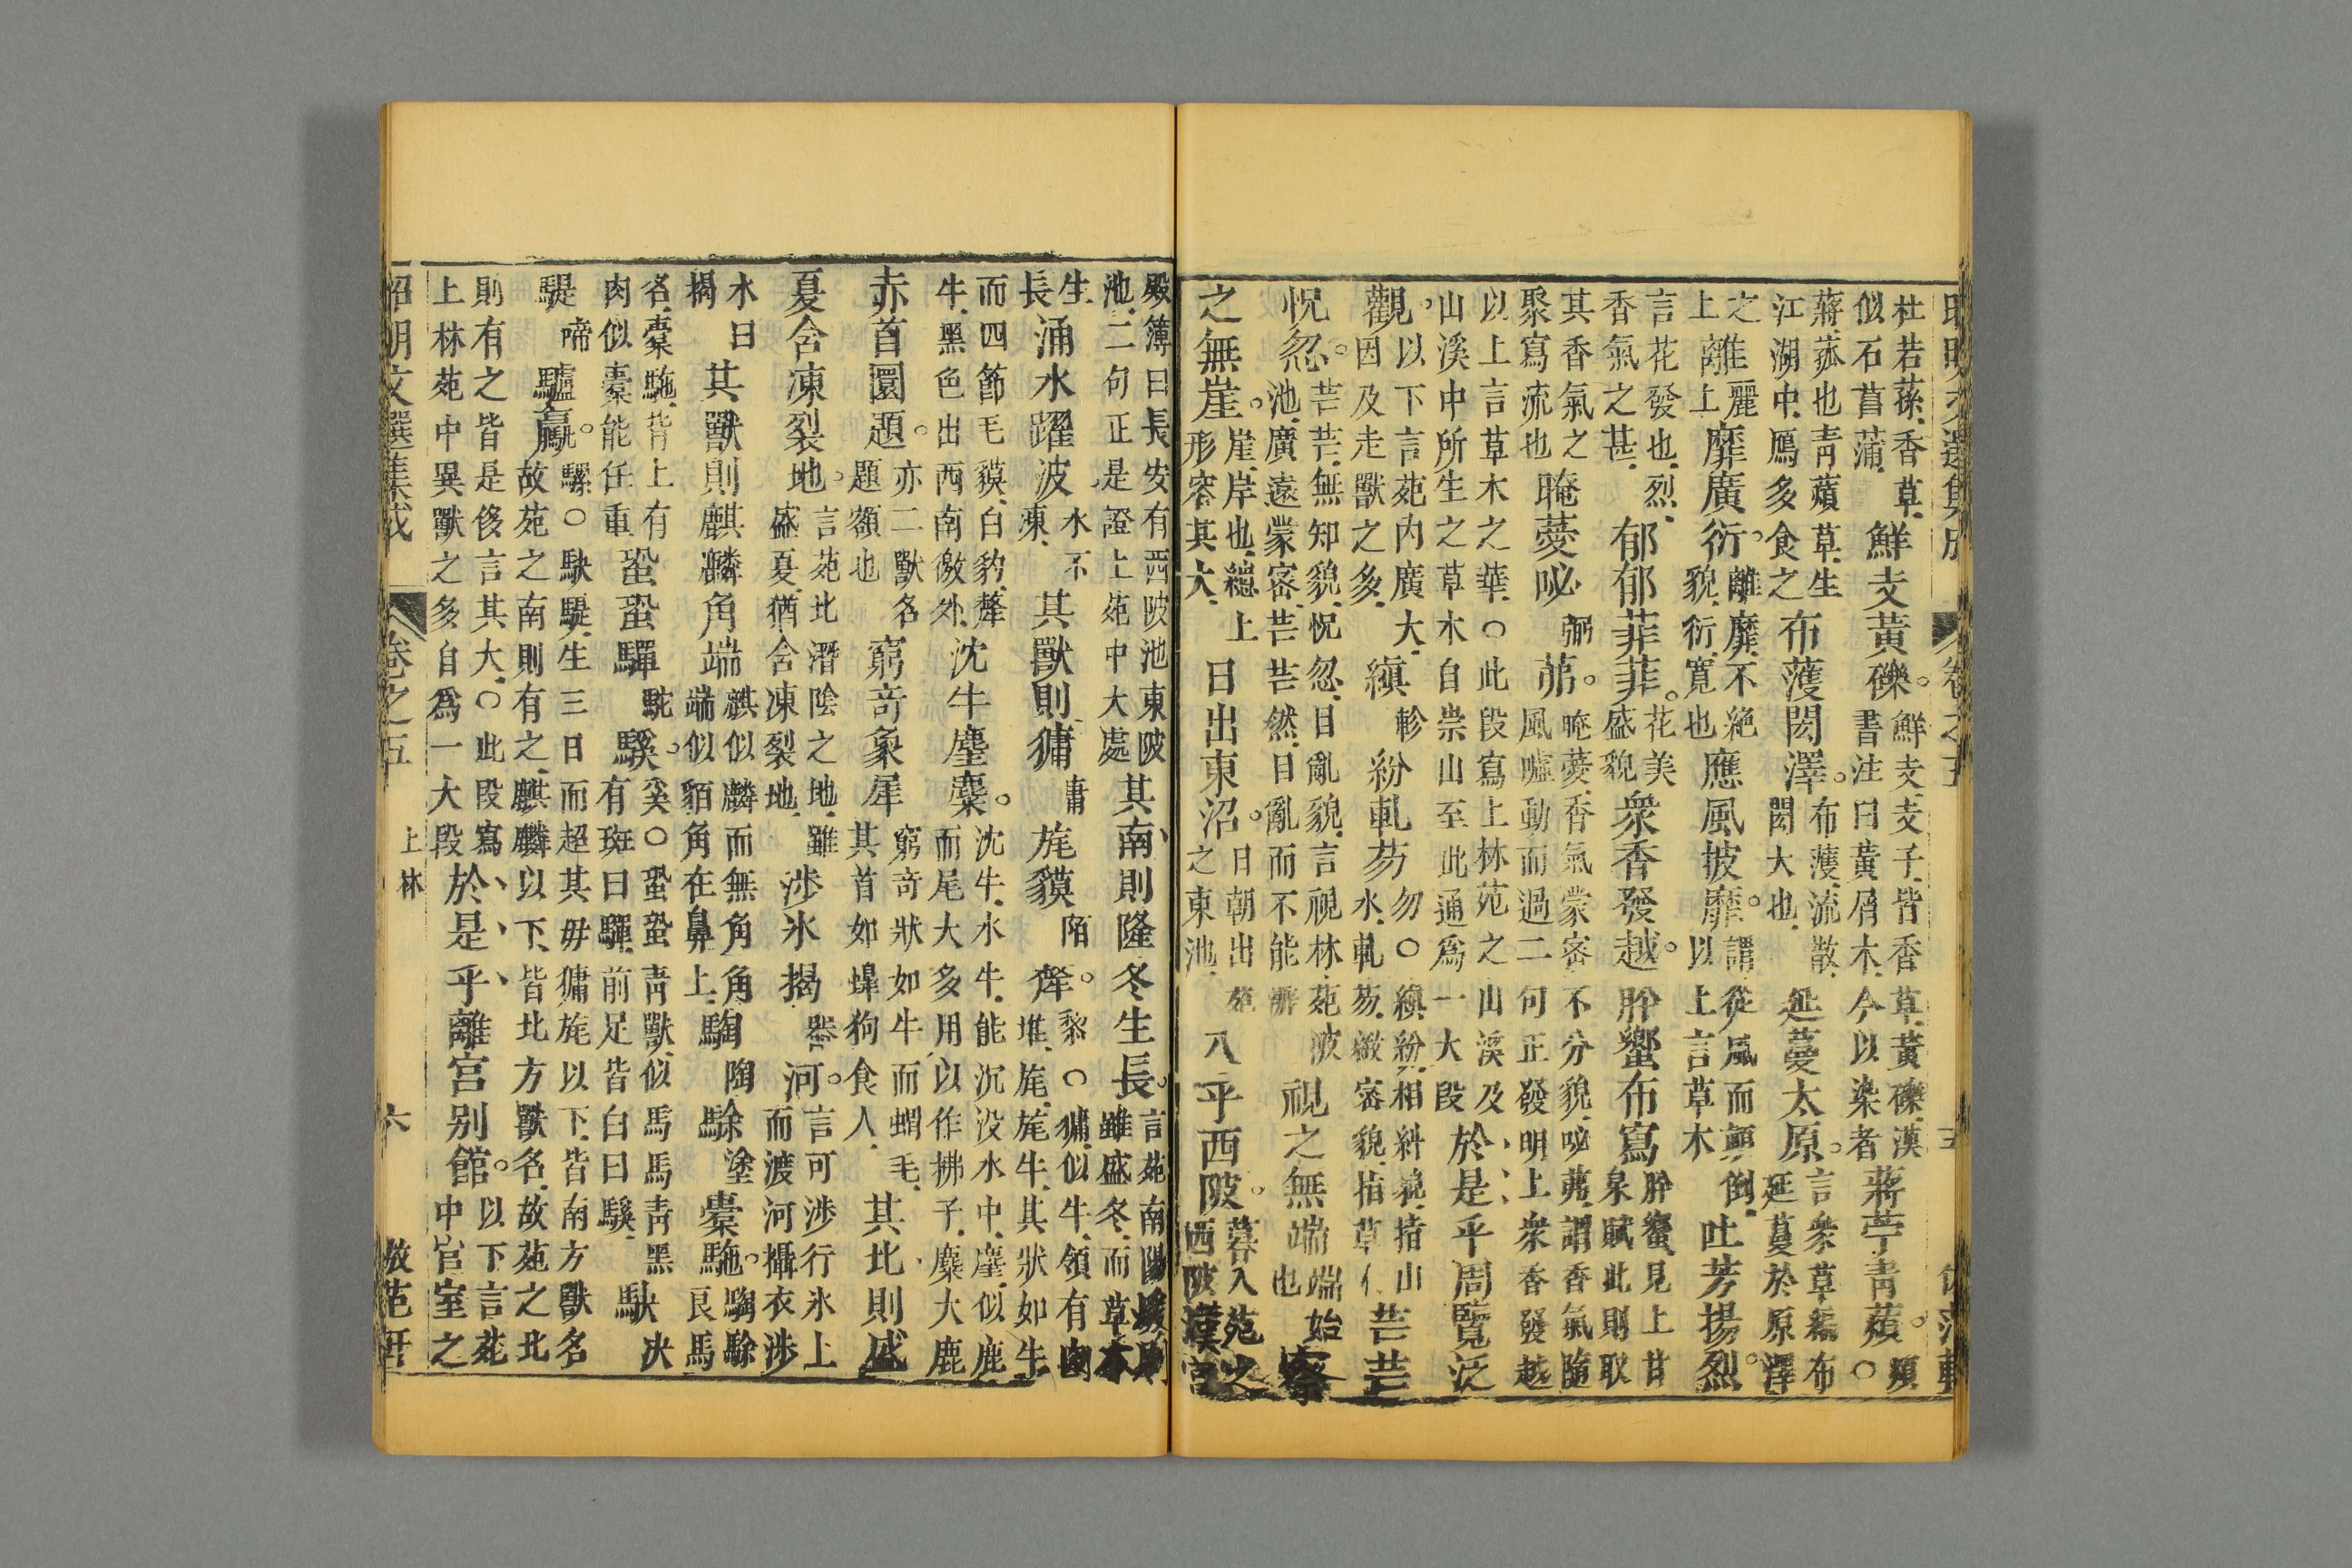 杜若蓀香草似石菖蒲鮮支黃礫鮮支支子皆香草黃礫漢書注曰黃屑木今以染者蔣苧靑薠薠○
蔣菰也靑薠草生江湖中鴈多食之布濩閎澤布濩流散閎大也延蔓太原言衆草㒹布延蔓於原澤
之離麗上離上靡廣衍離靡不絶貌衍寬也應風披靡謂從風而顚倒以上言草木吐芳揚烈
言花發也烈香氣之甚郁郁菲菲花美盛貌衆香發越肸蠁布寫肸蠁見上甘泉賦此則取
其香氣之聚寫流也腌薆咇弼茀腌薆香氣蒙密不分貌咇茀謂香氣隨風噓動而過二句正發明上衆香發越
以上言草木之華○此段寫上林苑之山溪及山溪中所生之草木自崇山至此通爲一大段於是乎周覽泛
觀以下言苑内廣大見因及走獸之多縝軫紛軋芴勿○縝紛相糾貌指山水軋芴緻密貌指草仁芒芒
怳忽芒芒無知貌怳忽日亂貌言視林苑波池廣遠蒙密芒芒然日亂而不能辨視之無端端始也察
之無崖崖岸也總上形容其大日出東沼日朝出苑之東池入乎西陂暮入苑之西陂漢宮
昭明文選集成 卷之五 五
殿簿曰長安有西陂池東陂池二句正是證上苑中大處其南則隆冬生長言苑南陽煖則雖盛冬而草木
生長涌水躍波水不凍其獸則㺎庸旄貘陌犛黎○㺎似牛領有肉堆旄旄牛其狀如牛
而四節毛貘白豹犛牛黑色出西南徼外沈牛麈麋沈牛水牛能沉没水中麈似鹿而尾大多用以作拂子麋大鹿
赤首圜題亦二獸名題額也窮奇象犀窮奇狀如牛而蝟毛其首如㙇狗食人其北則盛
夏含凍裂地言苑北潛陰之地雖盛夏猶含凍裂地涉氷揭器河言可涉行氷上而渡河攝衣涉
水曰揭其獸則麒麟角端麒似麟而無角角端似貊角在鼻上騊陶駼塗槖駞騊駼良馬
名槖駞背上有肉似槖能任重蛩蛩驒駞騱奚○蛩蛩靑獸似馬馬靑黑有斑曰驒前足皆白曰騱駃决
騠啼驢驘騾○駃騠生三日而超其毋㺎旄以下皆南方獸名故苑之南則有之麒麟以下皆北方獸名故苑之北
則有之皆是侈言其大○此段寫上林苑中異獸之多自爲一大段於是乎離宮别館以下言苑中宮室之
昭明文選集成 卷之五 上林 六 倣范軒